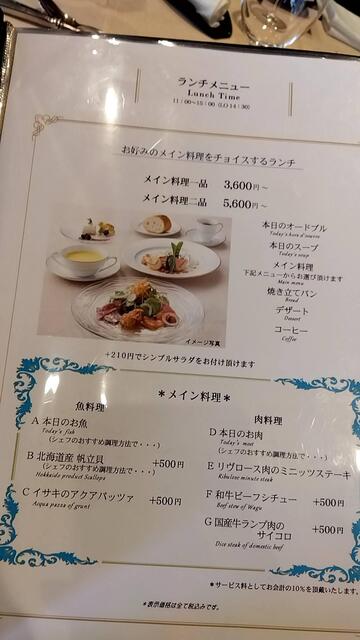 ランチメニュー
Lunch Time
11:00~15:00 (LO 14:30)
お好みのメイン料理をチョイスするランチ
メイン料理一品 3,600円~
メイン料理二品 5,600円~
本日のオードブル
Today's hors d'oeuvre
本日のスープ
Today's soup
メイン料理
下記メニューからお選び頂けます
Main menu
焼き立てパン
Bread
デザート
Dessert
コーヒー
Coffee
イメージ写真
+210円でシンプルサラダをお付け頂けます
*メイン料理*
魚料理
A 本日のお魚
Today's fish
(シェフのおすすめ調理方法で・・・)
B 北海道産 帆立貝 +500円
Hokkaido product Scallops
C イサキのアクアパッツァ +500円
Acqua pazza of grunt
肉料理
D 本日のお肉
Today's meat
(シェフのおすすめ調理方法で・・・)
E リヴロース肉のミニッツステーキ
Ribulose minute steak
F 和牛ビーフシチュー +500円
Beef stew of Wagu
G 国産牛ランプ肉の
サイコロ +500円
Dice steak of domestic beef
*サービス料としてお会計の10%を頂戴いたします。
*表示価格は全て税込みです。